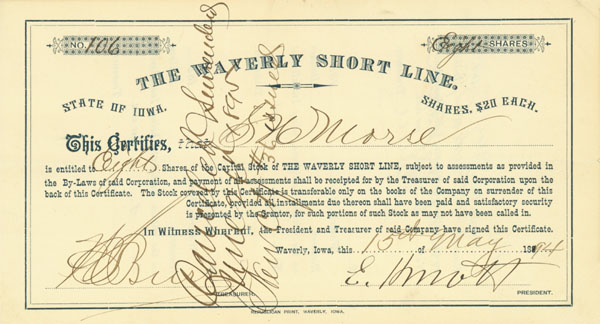 NO. 106
Eight SHARES
THE WAVERLY SHORT LINE.
STATE OF IOWA.
SHARES, $20 EACH.
This Certifies, That S H Morse
is entitled to Eight Shares of the Capital Stock of THE WAVERLY SHORT LINE, subject to assessments as provided in
the By-Laws of said Corporation, and payment of all assessments shall be receipted for by the Treasurer of said Corporation upon the
back of this Certificate. The Stock covered by this Certificate is transferable only on the books of the Company on surrender of this
Certificate, provided all installments due thereon shall have been paid and satisfactory security
is presented by the Grantor, for such portions of such Stock as may not have been called in.
In Witness Whereof, the President and Treasurer of said Company have signed this Certificate.
Waverly, Iowa, this 15th of May 18
TREASURER.
PRESIDENT.
REPUBLICAN PRINT, WAVERLY, IOWA.
Surrendered